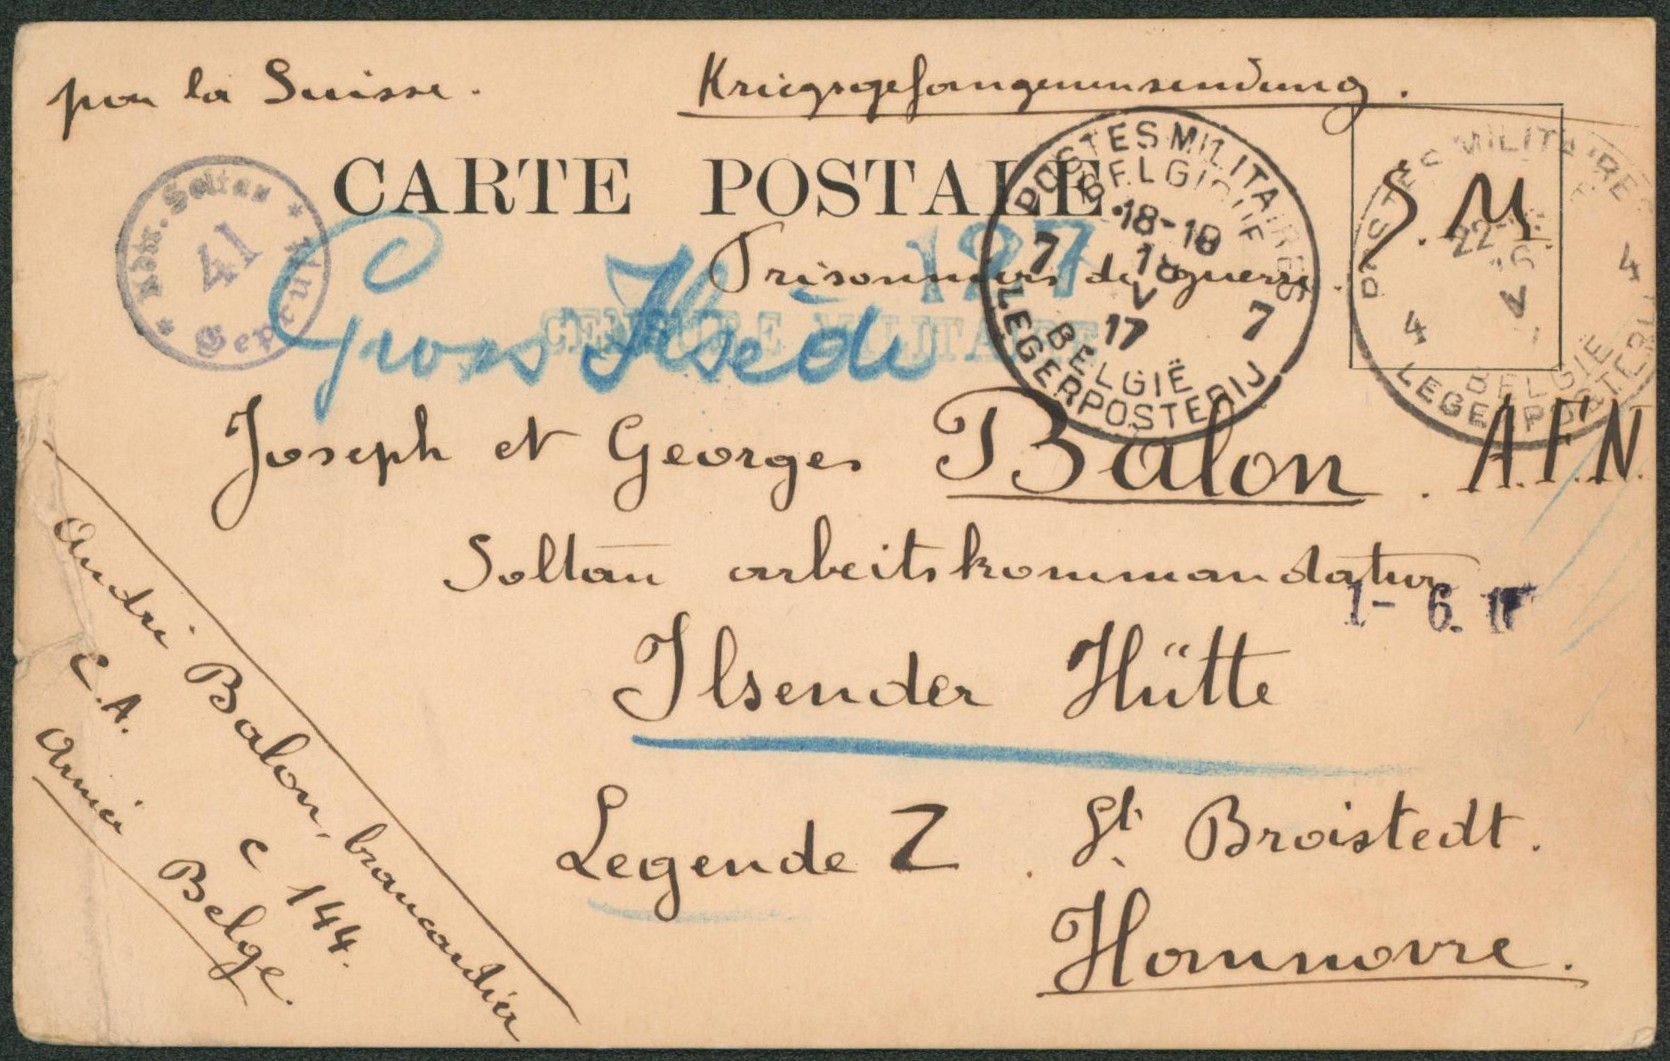 par la Suisse.
Kriegsgefangenensendung.
CARTE POSTALE
Prisonniers de guerre.
S. M
Abdr. Soltau
41
Geprüft
127
CENSURE MILITAIRE
Gross Ilsede
POSTES MILITAIRES
BELGIQUE
18-18
18
V
17
7 7
BELGIË
LEGERPOSTERIJ
POSTES MILITAIRES
22-
V
4 4
BELGIË
LEGERPOSTERIJ
Joseph et Georges Balon. A.F.N.
Soltau arbeitskommandatur
1-6.17
Ilsender Hütte
Legende Z. St. Broistedt.
Hannovre.
André Balon, brancardier
C.A. C 144.
Armée Belge.